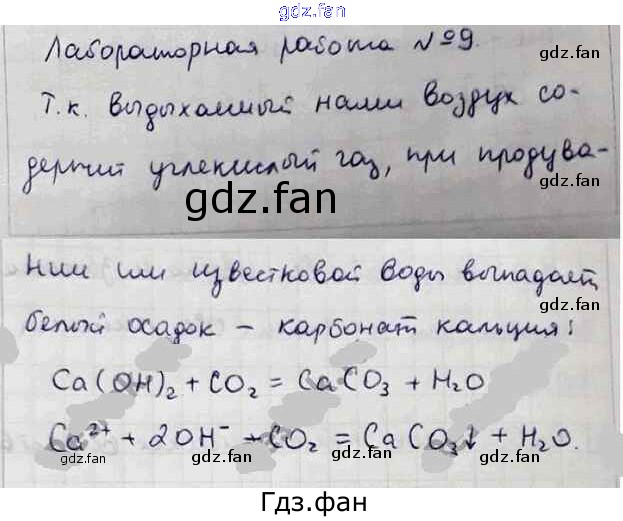 gdz.fan
Лабораторная работа №9.
gdz.fan
gdz.fan
Т.к. выдыхаемый нами воздух со-
держит углекислый газ, при продува-
gdz.fan
gdz.fan
gdz.fan
нии им известковой воды выпадает
gdz.fan
gdz.fan
белый осадок – карбонат кальция:
Ca(OH)₂ + CO₂ = CaCO₃ + H₂O
gdz.fan
gdz.fan
Ca²⁺ + 2OH⁻ + CO₂ = CaCO₃↓ + H₂O.
gdz.fan
gdz.fan
gdz.fan
Гдз.фан